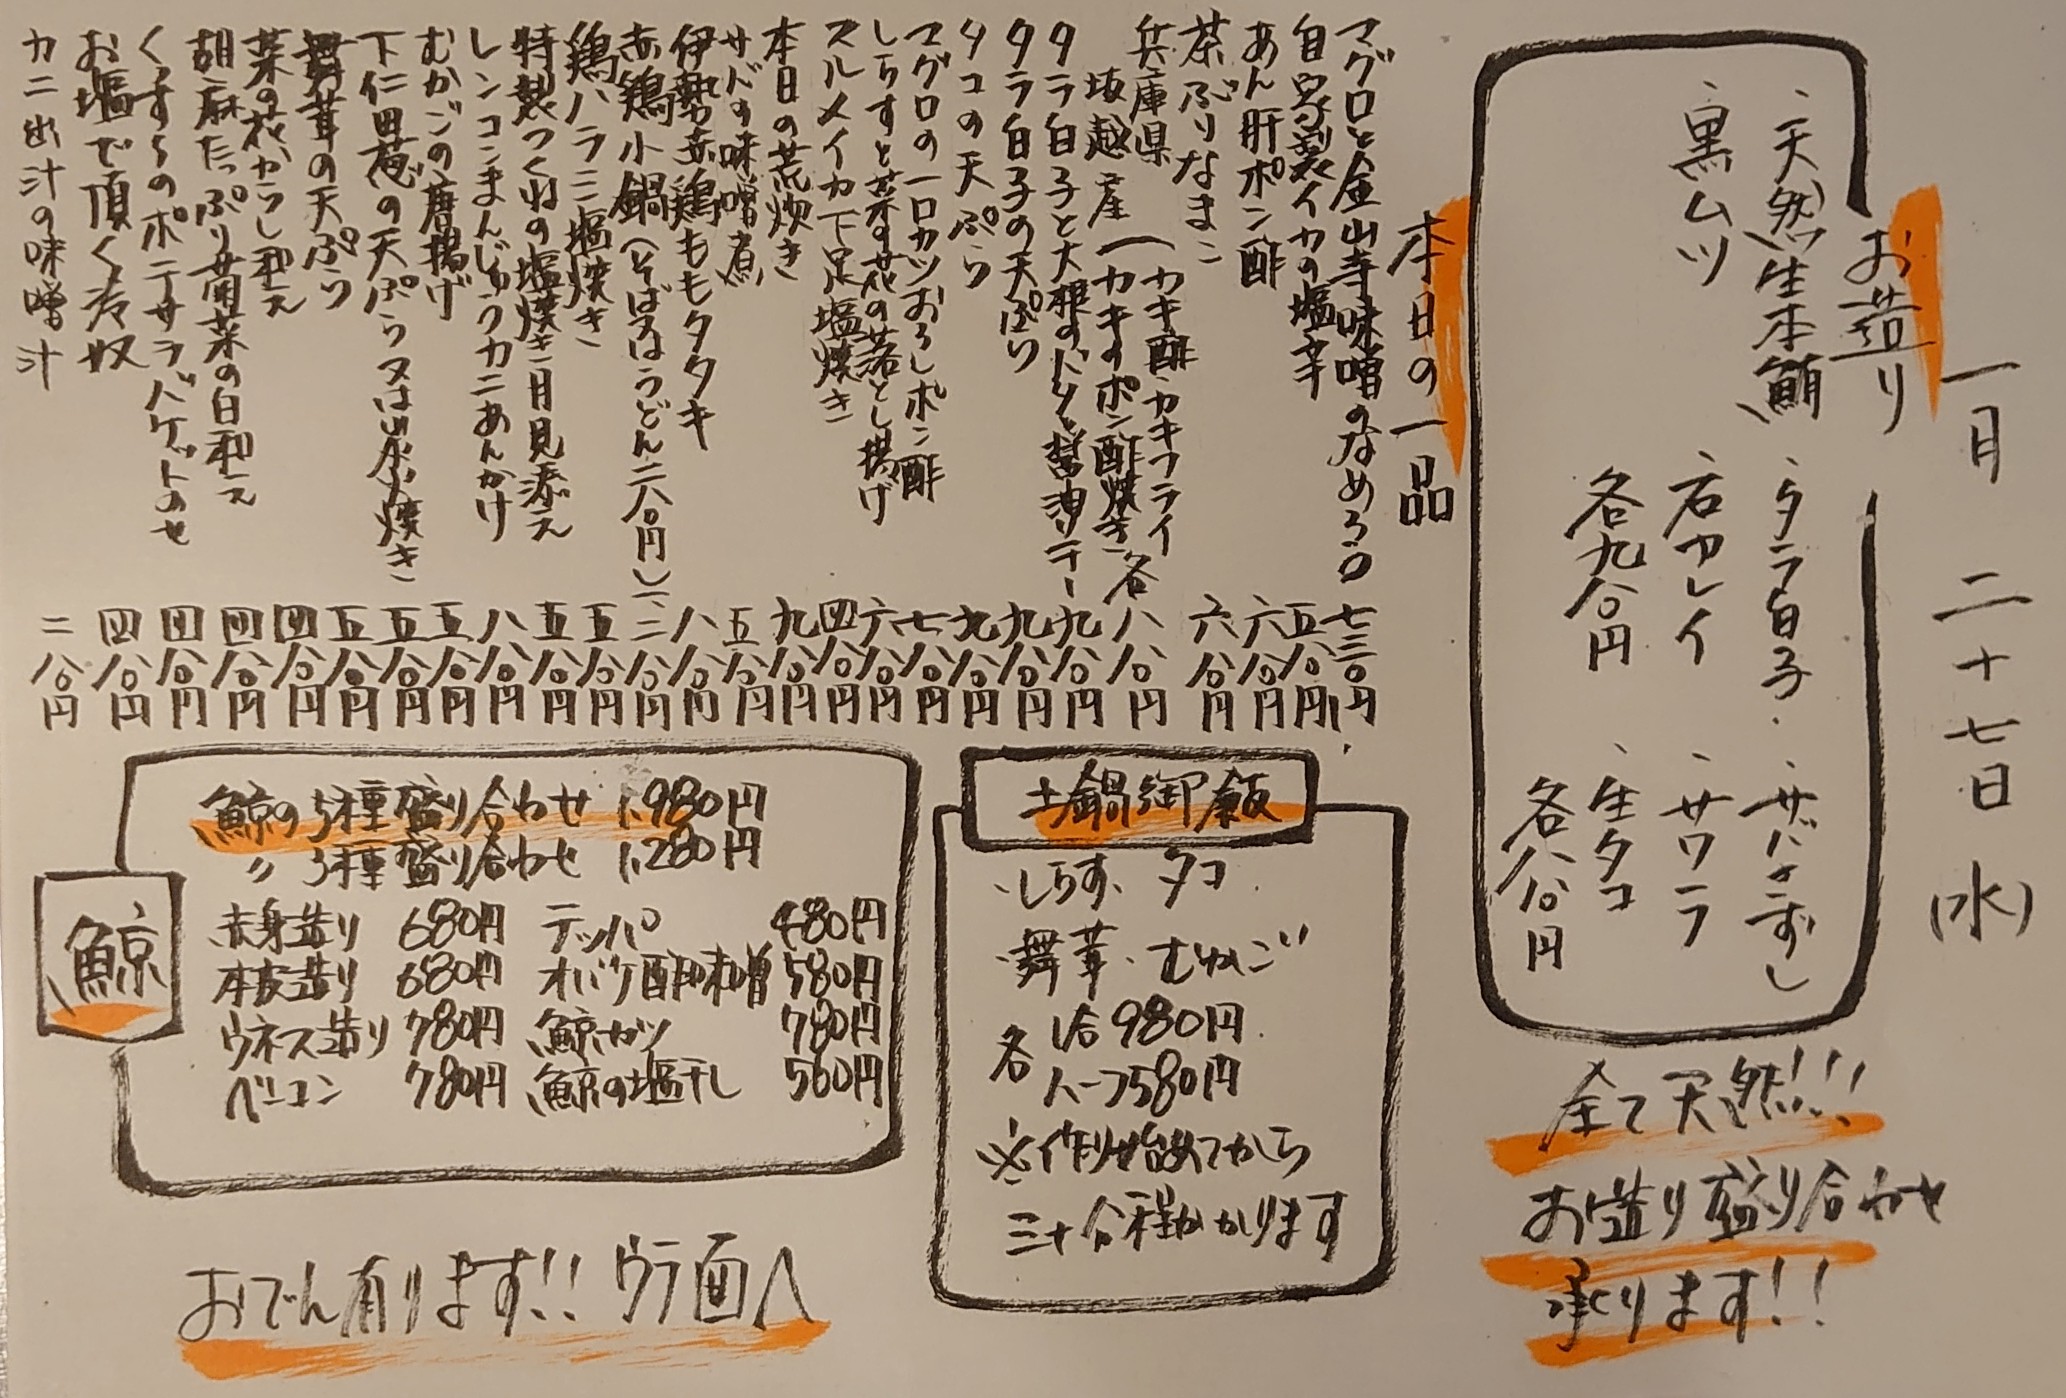 一月二十七日(水)
お造り
・天然生本鮪
・タラ白子
・サバきずし
・黒ムツ
・石カレイ
・サワラ
各九八〇円
・生タコ
各八八〇円
全て天然!!!
お造り盛り合わせ
承ります!!
本日の一品
マグロと金山寺味噌のなめろう 七三〇円
自家製イカの塩辛 五八〇円
あん肝ポン酢 六八〇円
茶ぶりなまこ 六八〇円
兵庫県
坂越産(カキ酢・カキフライ
カキのポン酢焼き 各八八〇円
タラ白子と大根のバター醤油ソテー 九八〇円
タラ白子の天ぷら 九八〇円
タコの天ぷら 九八〇円
マグロの一口カツおろしポン酢 七八〇円
しらすと菜の花の落とし揚げ 六八〇円
スルメイカ下足塩焼き 四八〇円
本日の荒炊き 九八〇円
サバの味噌煮 五八〇円
伊勢赤鶏ももタタキ 八八〇円
赤鶏小鍋(そば又はうどん二八〇円) 一、二八〇円
鶏ハラミ塩焼き 五八〇円
特製つくねの塩焼き月見添え 五八〇円
レンコンまんじゅうカニあんかけ 八八〇円
むかごの唐揚げ 五八〇円
下仁田葱の天ぷら又は炭火焼き 五八〇円
舞茸の天ぷら 五八〇円
菜の花からし和え 四八〇円
胡麻たっぷり菊菜の白和え 四八〇円
くずらのポテサラバゲットのせ 四八〇円
お塩で頂く冷奴 四八〇円
カニ出汁の味噌汁 二八〇円
土鍋御飯
・しらす・タコ
・舞茸・むかご
各 1合980円
ハーフ580円
※作り始めてから
三十分程かかります
鯨
鯨の5種盛り合わせ 1,980円
〃 3種盛り合わせ 1,280円
赤身造り 680円 テッパ 480円
本皮造り 680円 オバケ酢味噌 580円
ウネス造り 780円 鯨カツ 780円
ベーコン 780円 鯨の塩干し 560円
おでん有ります!!ウラ面へ